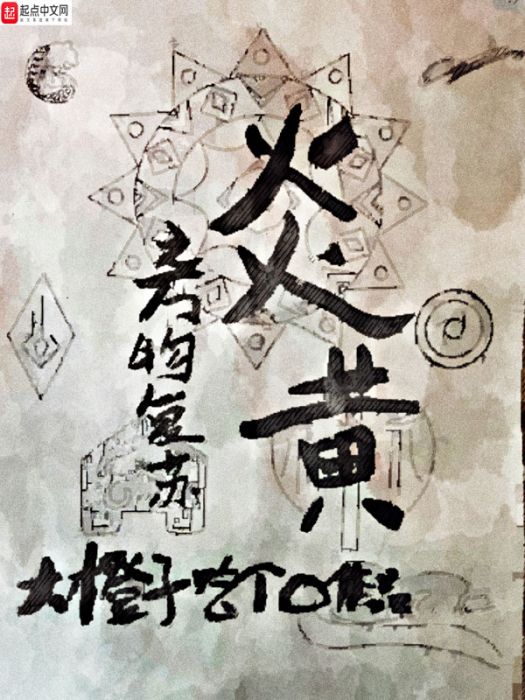 起点中文网
炎黄
的复苏
大橙子吃 作品